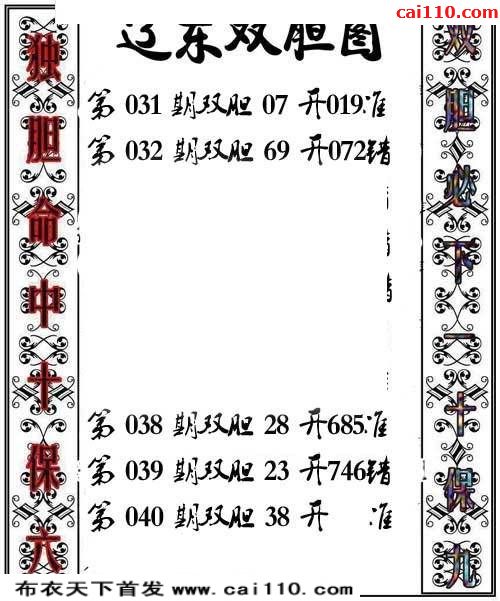 cai110.com
辽东双胆图
独胆命中十保六
双胆必下一十保九
第 031 期双胆 07 开019准
第 032 期双胆 69 开072错
第 038 期双胆 28 开685准
第 039 期双胆 23 开746错
第 040 期双胆 38 开 准
布衣天下首发 www.cai110.com